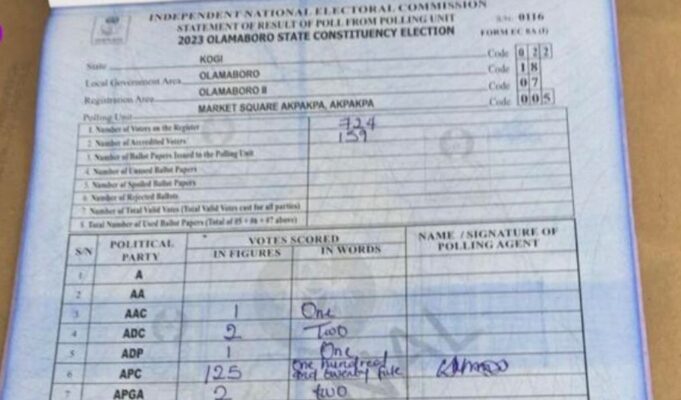 INDEPENDENT NATIONAL ELECTORAL COMMISSION
STATEMENT OF RESULT OF POLL FROM POLLING UNIT
S/No 0116
2023 OLAMABORO STATE CONSTITUENCY ELECTION
FORM EC 8A (I)
State KOGI Code 0 2 2
Local Government Area OLAMABORO Code 1 8
Registration Area OLAMABORO II Code 0 7
Polling Unit MARKET SQUARE AKPAKPA, AKPAKPA Code 0 0 5
1. Number of Voters on the Register 724
2. Number of Accredited Voters 139
3. Number of Ballot Papers Issued to the Polling Unit
4. Number of Unused Ballot Papers
5. Number of Spoiled Ballot Papers
6. Number of Rejected Ballots
7. Number of Total Valid Votes (Total Valid Votes cast for all parties)
8. Total Number of Used Ballot Papers (Total of #5 + #6 + #7 above)
S/N POLITICAL PARTY VOTES SCORED NAME / SIGNATURE OF POLLING AGENT
IN FIGURES IN WORDS
1 A
2 AA
3 AAC 1 One
4 ADC 2 Two
5 ADP 1 One
6 APC 125 One hundred and twenty five
7 APGA 2 two